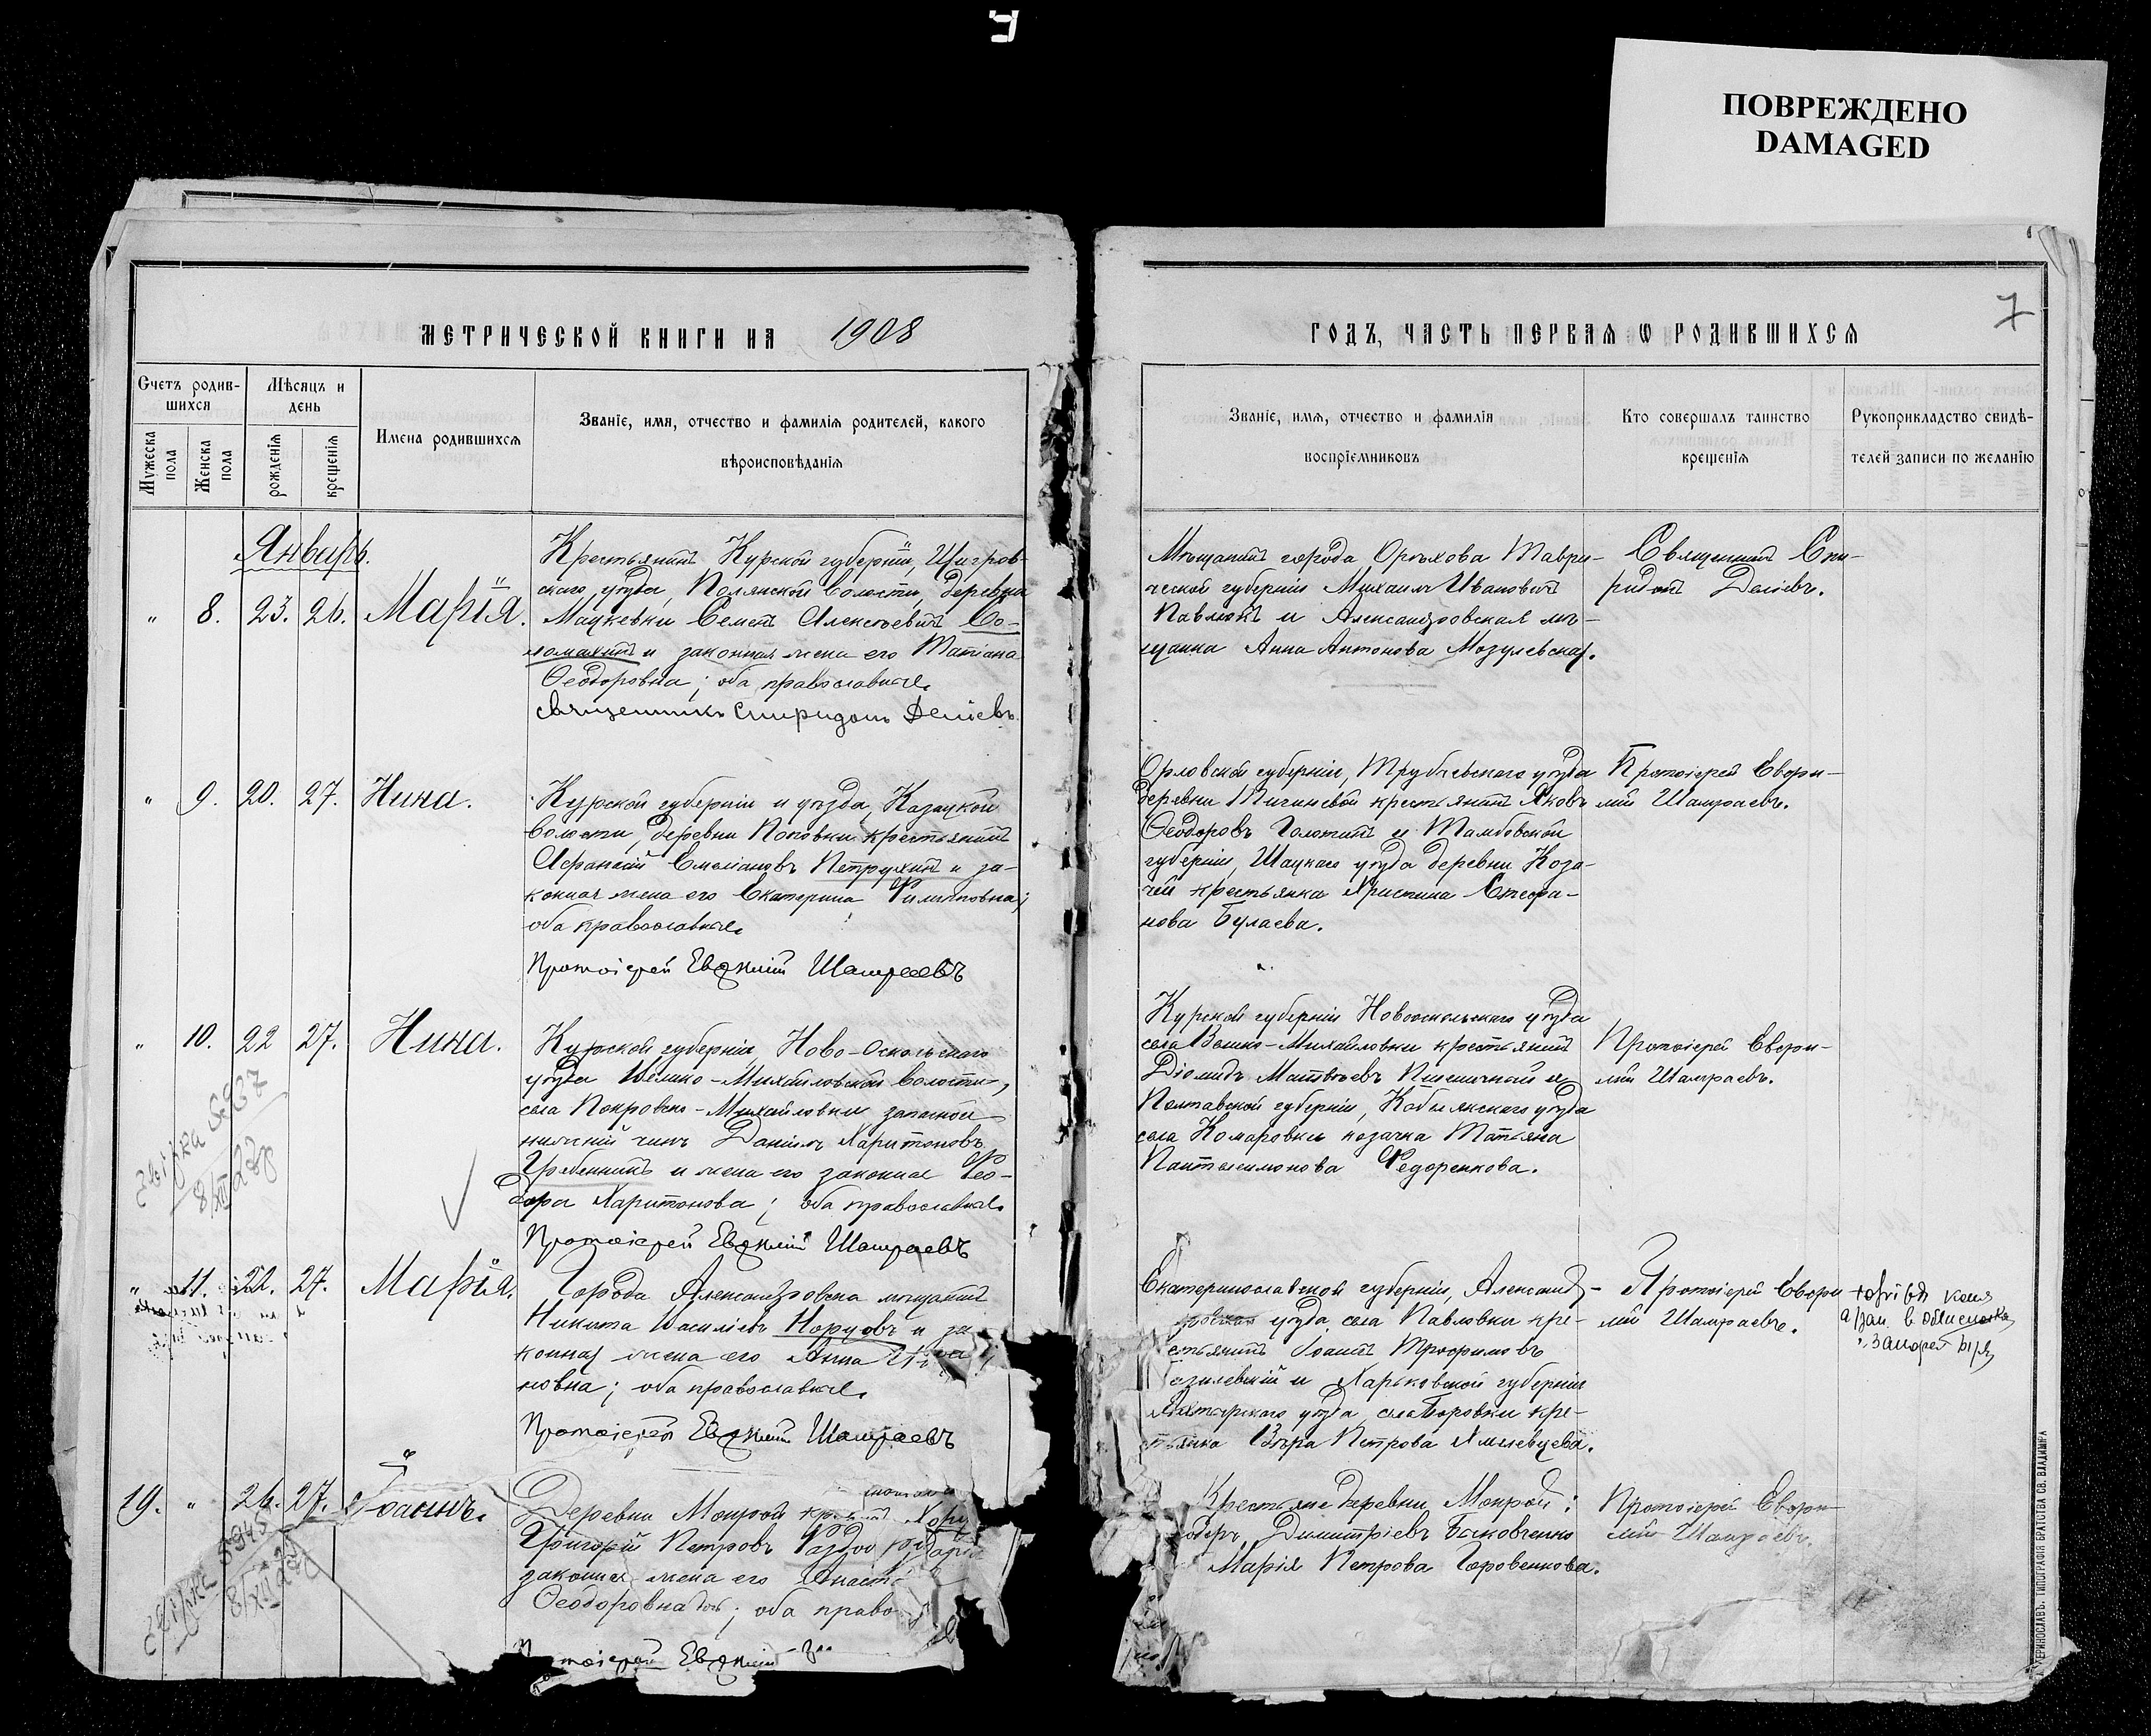 ПОВРЕЖДЕНО
DAMAGED
7
МЕТРИЧЕСКОЙ КНИГИ НА 1908
ГОДЪ, ЧАСТЬ ПЕРВАЯ Ѡ РОДИВШИХСЯ
Счетъ родив-
шихся
Мужеска
пола
Женска
пола
Мѣсяцъ и
день
рожденія
крещенія
Имена родившихся
Званіе, имя, отчество и фамилія родителей, какого
вѣроисповѣданія
Званіе, имя, отчество и фамилія
воспріемниковъ
Кто совершалъ таинство
крещенія
Рукоприкладство свидѣ-
телей записи по желанію
Январь.
" 8. 23. 26. Марія.
Крестьянинъ Курской губерніи, Щигров-
скаго уѣзда, Полянской волости, деревни
Мацкевки Семенъ Алексѣевичъ Со-
ломахинъ и законная жена его Татіана
Ѳеодоровна; оба православные.
Священникъ Спиридонъ Деліевъ.
Мѣщанинъ города Орѣхова Таври-
ческой губерніи Михаилъ Ивановичъ
Павлюкъ и Александровская мѣ-
щанка Анна Антонова Мозулевская.
Священникъ Спи-
ридонъ Деліевъ.
" 9. 20. 27. Нина.
Курской губерніи и уѣзда, Казацкой
волости, деревни Поповки крестьянинъ
Афанасій Емеліановъ Петрухинъ и за-
конная жена его Екатерина Филипповна;
оба православные.
Протоіерей Евѳимій Шамраевъ
Орловской губерніи, Трубчевскаго уѣзда
деревни крестьянинъ Яковъ
Ѳеодоровъ и Тамбовской
губерніи, Шацкаго уѣзда деревни Коза-
чей крестьянка Христина Стефа-
нова Булаева.
Протоіерей Евѳи-
мій Шамраевъ.
" 10. 22 27. Нина.
Курской губерніи, Ново-Оскольскаго
уѣзда Велико-Михайловской волости,
села Покровско-Михайловки запасной
нижній чинъ Даніилъ Харитоновъ
Гребенникъ и жена его законная Ѳео-
дора Харитонова; оба православные.
Протоіерей Евѳимій Шамраевъ
Курской губерніи Новооскольскаго уѣзда
села Михайловки крестьянинъ
Діомидъ Матвѣевъ Пшеничной и
Полтавской губерніи, Кобелякскаго уѣзда
села Комаровки козачка Татьяна
Пантелеимонова Федоренкова.
Протоіерей Евѳи-
мій Шамраевъ.
" 11. 22. 27. Марія.
Города Александровска мѣщанинъ
Никита Василіевъ Норцовъ и за
конная жена его Анна
новна; оба православные.
Протоіерей Евѳимій Шамраевъ
Екатеринославской губерніи, Александ-
уѣзда села Павловки кре-
стьянинъ Іоаннъ Трофимовъ
и Харьковской губерніи
уѣзда, села Боровки кре-
стьянка Вѣра Петрова
Протоіерей Евѳи
мій Шамраевъ.
19. " 26. 27. Іоаннъ.
Деревни Мокрой
Григорій Петровъ
законная жена его
Ѳеодоровна; оба право
Протоіерей Евѳимій
Крестьяне деревни Мокрой:
Димитріевъ Быковченко
Марія Петрова Горовенкова.
Протоіерей Евѳи-
мій Шамраевъ.
ЕКАТЕРИНОСЛАВЪ. ТИПОГРАФІЯ БРАТСТВА СВ. ВЛАДИМІРА